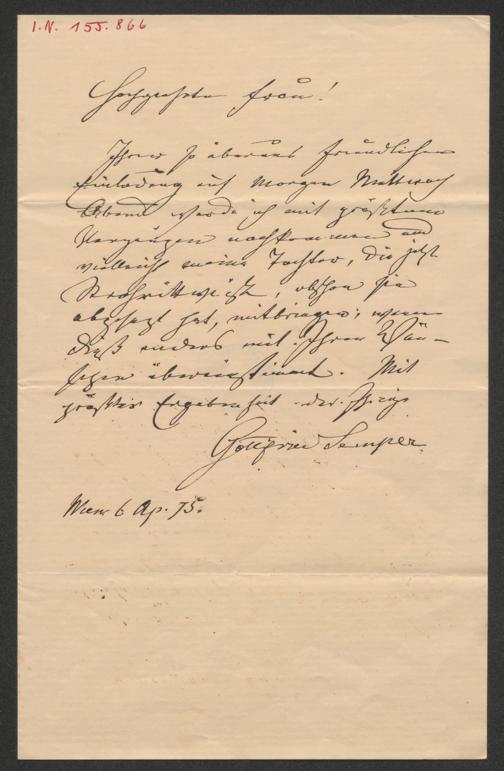 I.N. 155.866
Hochgeehrte Frau!
Ihrer so überaus freundlichen
Einladung auf Morgen Mittwoch
Abend werde ich mit größtem
Vergnügen nachkommen und
vielleicht meine Tochter, die jetzt
Strohwittwe ist, obschon sie
abgesagt hat, mitbringen; wenn
dieß anders mit Ihren Wün-
schen übereinstimmt. Mit
größter Ergebenheit der Ihrige
Gottfried Semper
Wien 6 Ap. 75.